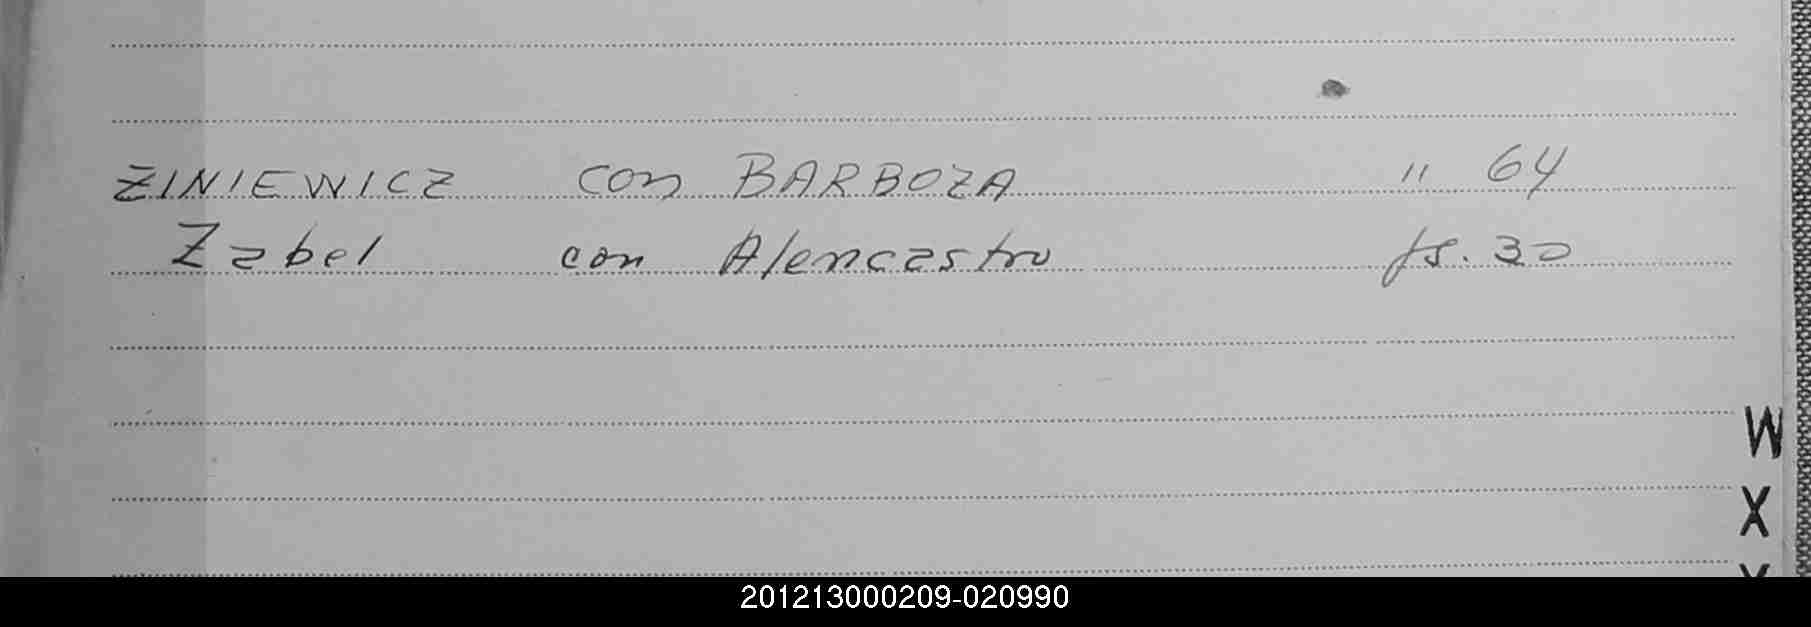 ZINIEWICZ con BARBOZA " 64
Zabel con Alencastro fs. 30
W
X
Y
201213000209-020990